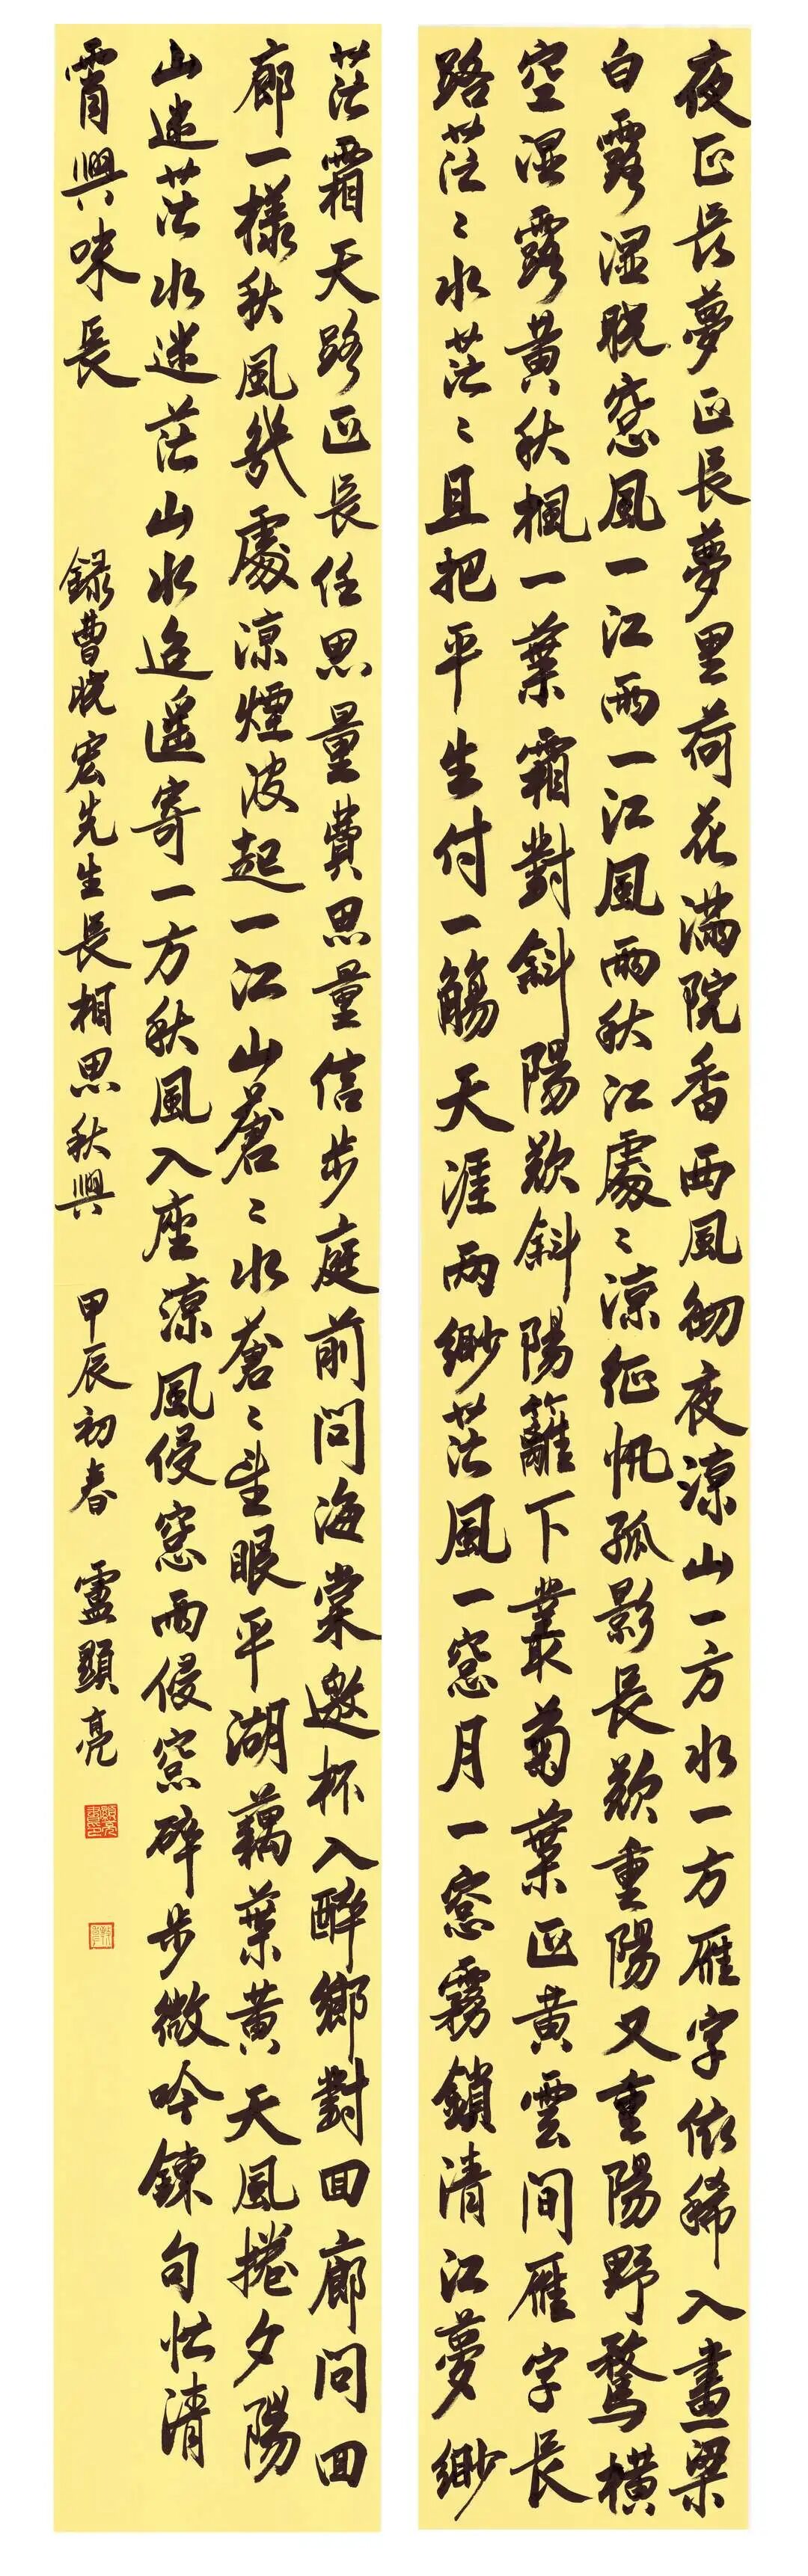 夜正長夢正長夢里荷花滿院香西風初夜涼山一方水一方雁字依稀入畫梁
白露濕曉窓風一江雨一江風雨秋江處〻涼征帆孤影長歎重陽又重陽野鶩橫
空濕露黄秋楓一葉霜對斜陽歎斜陽籬下叢菊葉正黄雲間雁字長
路茫〻水茫〻且把平生付一觴天涯兩緲茫風一窓月一窓霧鎖清江夢緲
茫霜天路正長任思量費思量信步庭前問海棠邀杯入醉鄉對回廊問回
廊一樣秋風幾處涼煙波起一江山蒼〻水蒼〻望眼平湖藕葉黄天風捲夕陽
山迷茫水迷茫山水迢遥寄一方秋風入座涼風侵窓雨侵窓碎步微吟鍊句忙清
宵興味長
録曹曉宏先生長相思秋興
甲辰初春 盧顯亮